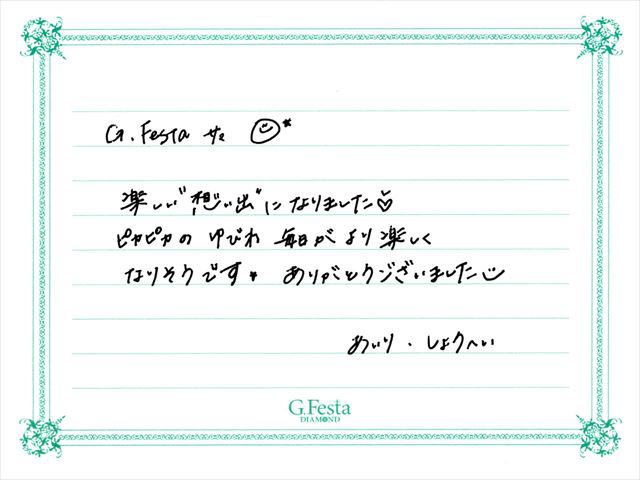 G.Festa さま
楽しい"想い出"になりました♡
ピカピカの ゆびわ 毎日が より 楽しく
なりそうです* ありがとうございました
あいり・しょうへい
G.Festa
DIAMOND